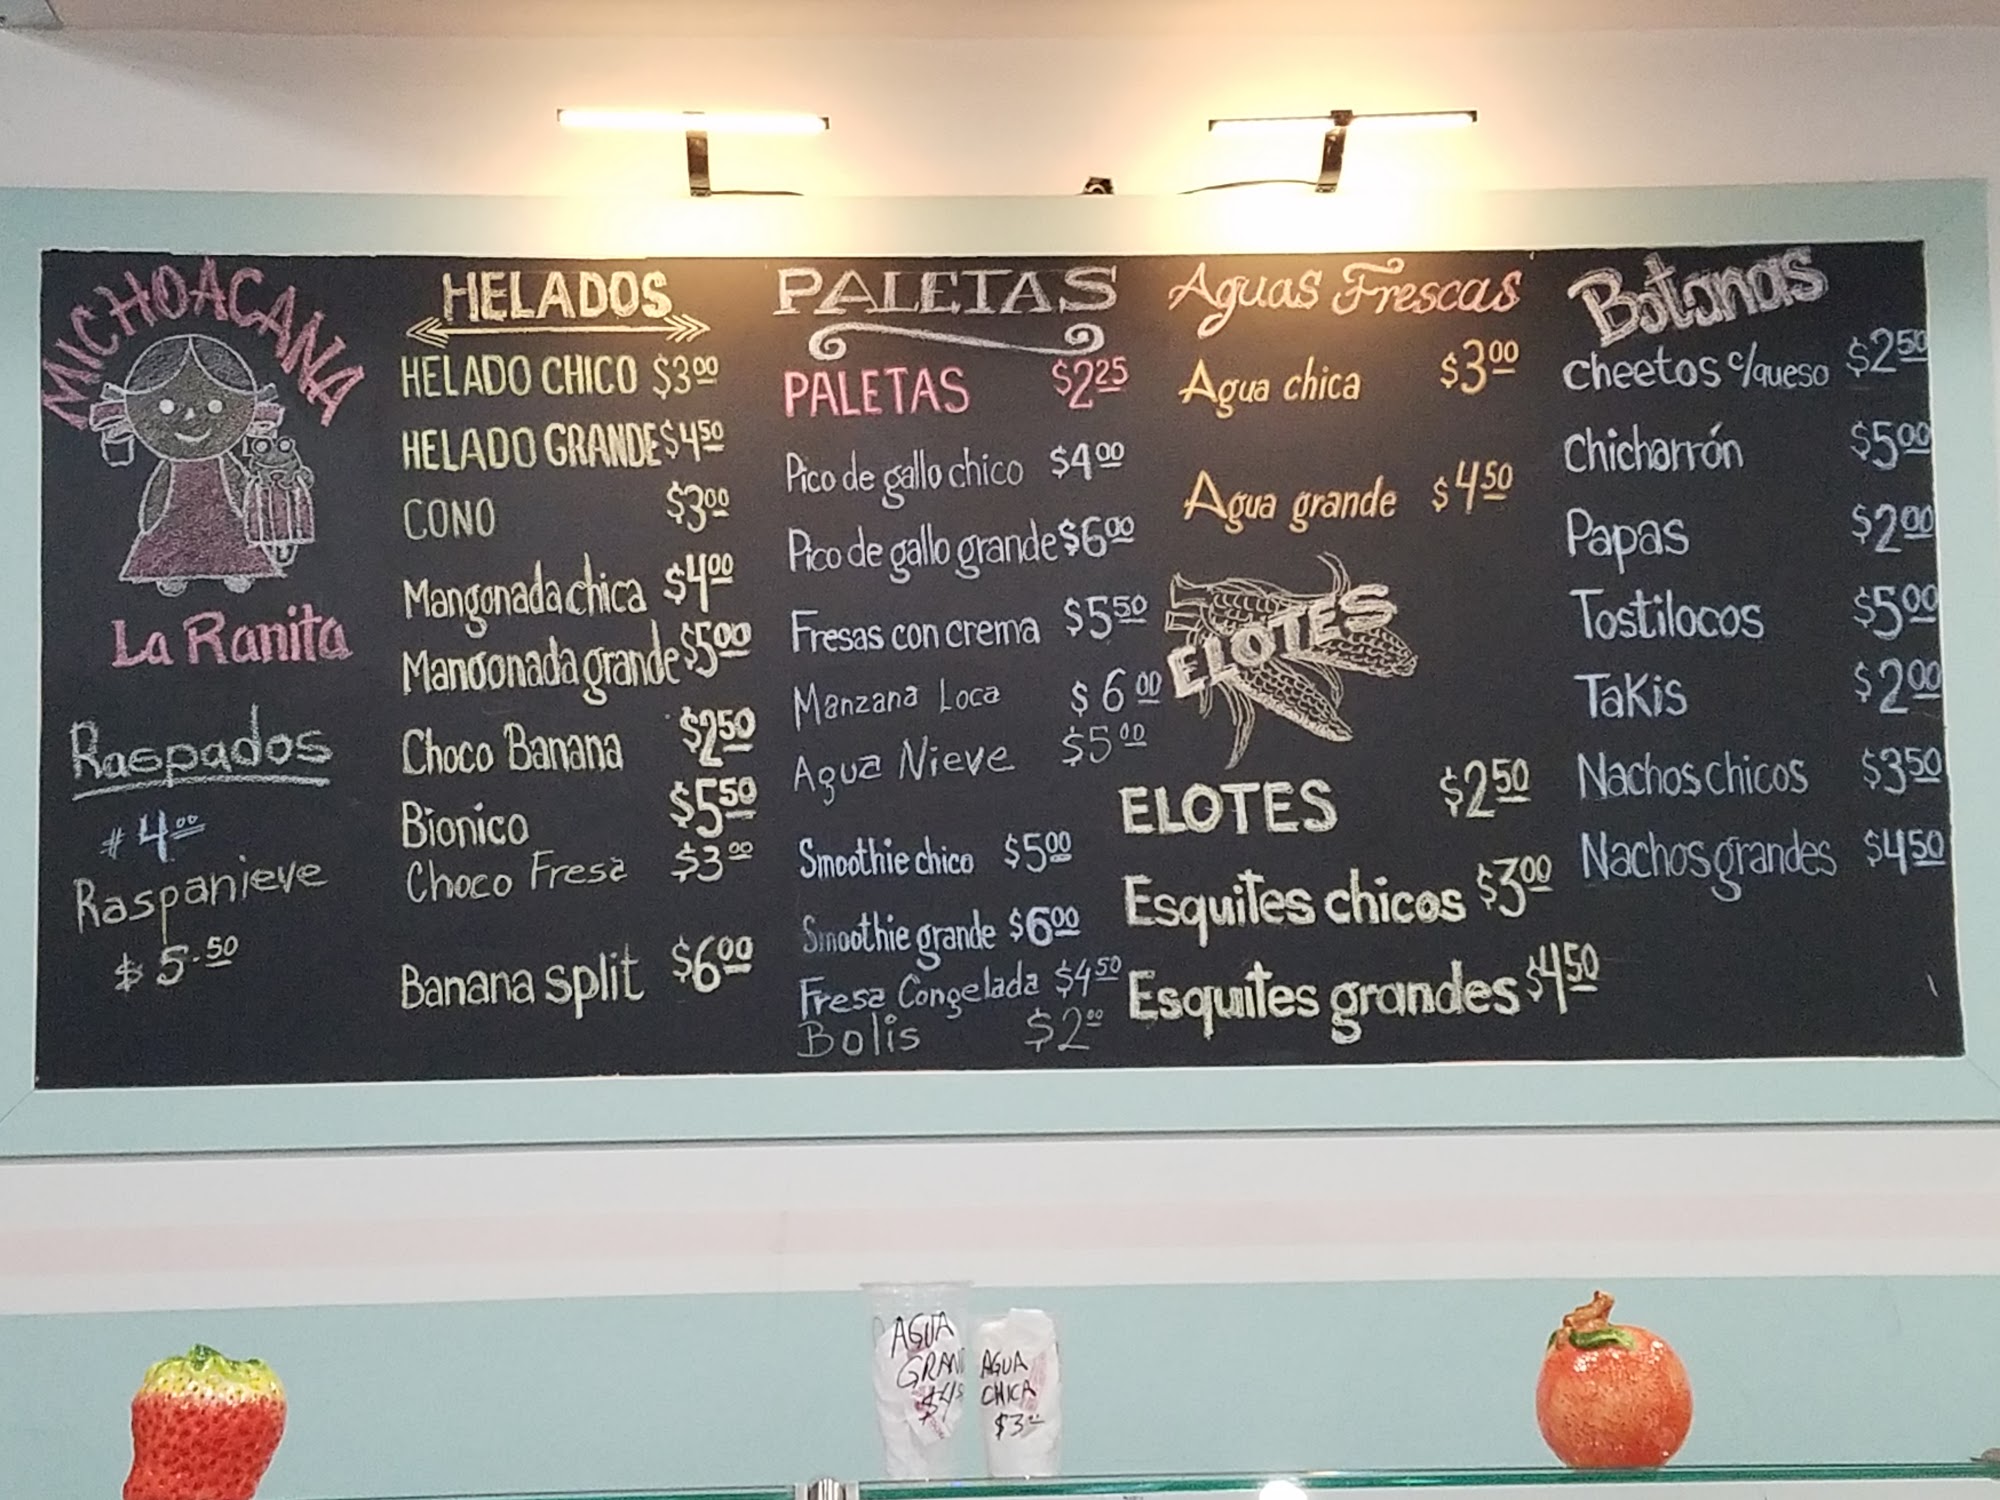 MICHOACANA
La Ranita
Raspados
$4.00
Raspanieve
$5.50
HELADOS
HELADO CHICO $3.00
HELADO GRANDE $4.50
CONO $3.00
Mangonada chica $4.00
Mangonada grande $5.00
Choco Banana $2.50
Bionico $5.50
Choco Fresa $3.00
Banana split $6.00
PALETAS
PALETAS $2.25
Pico de gallo chico $4.00
Pico de gallo grande $6.00
Fresas con crema $5.50
Manzana Loca $6.00
Agua Nieve $5.00
Smoothie chico $5.00
Smoothie grande $6.00
Fresa Congelada $4.50
Bolis $2.00
Aguas Frescas
Agua chica $3.00
Agua grande $4.50
ELOTES
ELOTES $2.50
Esquites chicos $3.00
Esquites grandes $4.50
Botanas
Cheetos c/queso $2.50
Chicharrón $5.00
Papas $2.00
Tostilocos $5.00
Takis $2.00
Nachos chicos $3.50
Nachos grandes $4.50
AGUA
GRAN
AGUA
CHICA
$3.00